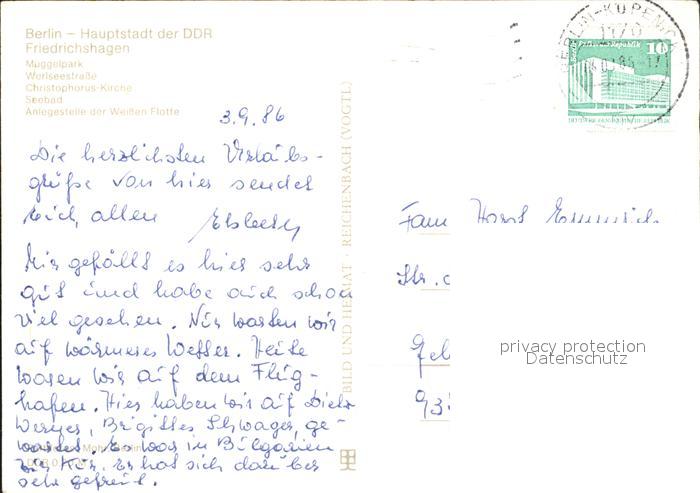 Berlin – Hauptstadt der DDR
Friedrichshagen
Müggelpark
Werlseestraße
Christophorus-Kirche
Seebad
Anlegestelle der Weißen Flotte
3.9.86
Die herzlichsten Urlaubs-
grüße von hier sendet
Euch allen
Mir gefällt es hier sehr
gut und habe auch schon
viel gesehen. Nur warten wir
auf wärmeres Wetter. Heute
waren wir auf dem Flug-
hafen. Hier haben wir auf Dieter
Werner, Brigittes Schwager, ge-
wartet. Er war in Bulgarien
zur Kur. Er hat sich darüber
sehr gefreut.
BILD UND HEIMAT · REICHENBACH (VOGTL)
BERLIN-KÖPENICK
1170
10
Fam Horst
Str.
privacy protection
Datenschutz